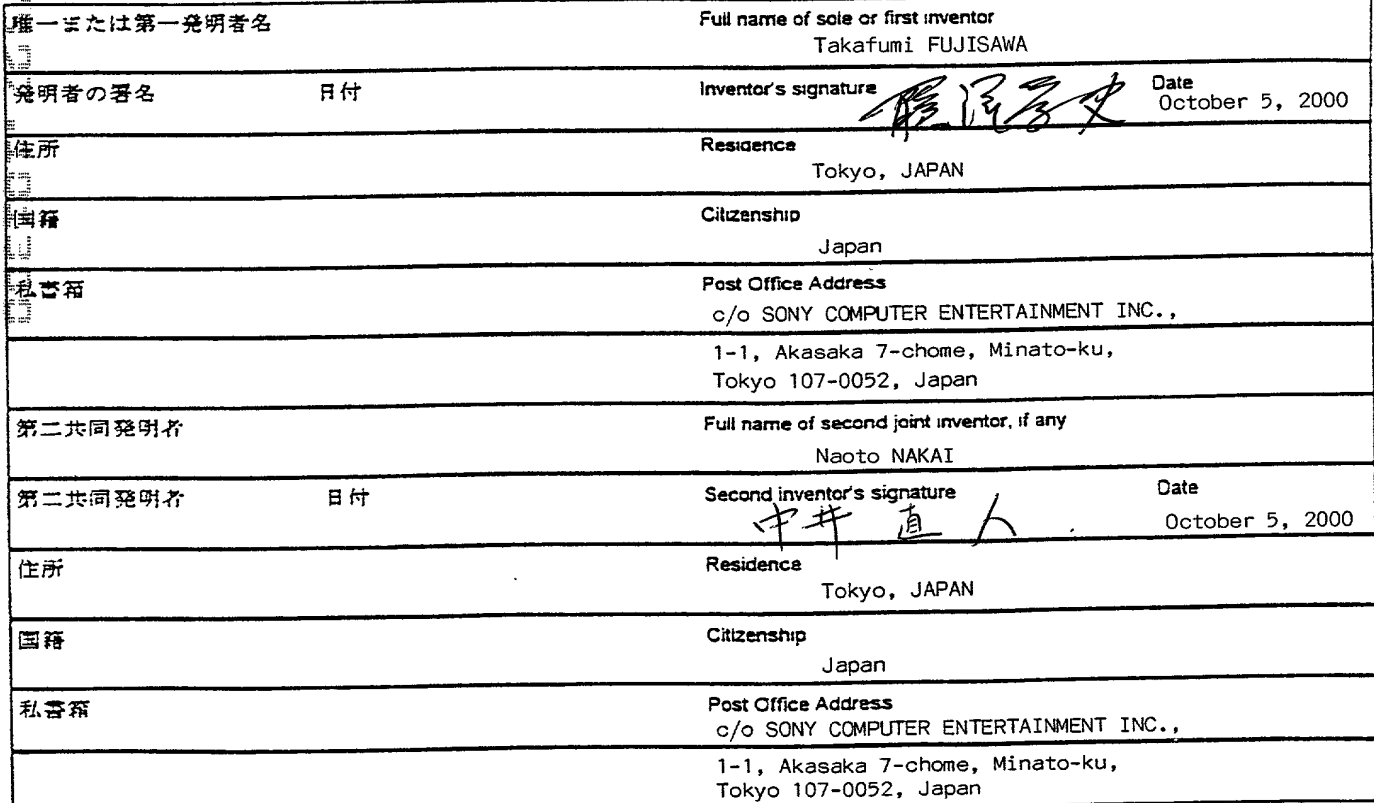 唯一または第一発明者名
Full name of sole or first inventor
Takafumi FUJISAWA
発明者の署名 日付
Inventor's signature 藤澤孝史 Date
October 5, 2000
住所
Residence
Tokyo, JAPAN
国籍
Citizenship
Japan
私書箱
Post Office Address
c/o SONY COMPUTER ENTERTAINMENT INC.,
1-1, Akasaka 7-chome, Minato-ku,
Tokyo 107-0052, Japan
第二共同発明者
Full name of second joint inventor, if any
Naoto NAKAI
第二共同発明者 日付
Second inventor's signature 中井 直人 Date
October 5, 2000
住所
Residence
Tokyo, JAPAN
国籍
Citizenship
Japan
私書箱
Post Office Address
c/o SONY COMPUTER ENTERTAINMENT INC.,
1-1, Akasaka 7-chome, Minato-ku,
Tokyo 107-0052, Japan